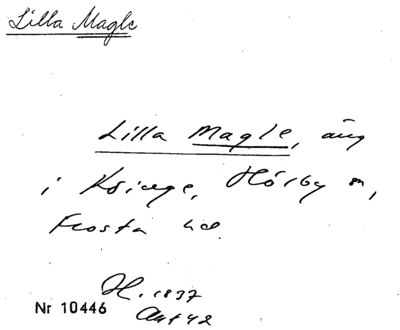 Lilla Magle
Lilla Magle, äng
i Hörby sn,
Frosta hd
H. 1837
Nr 10446
Akt 42